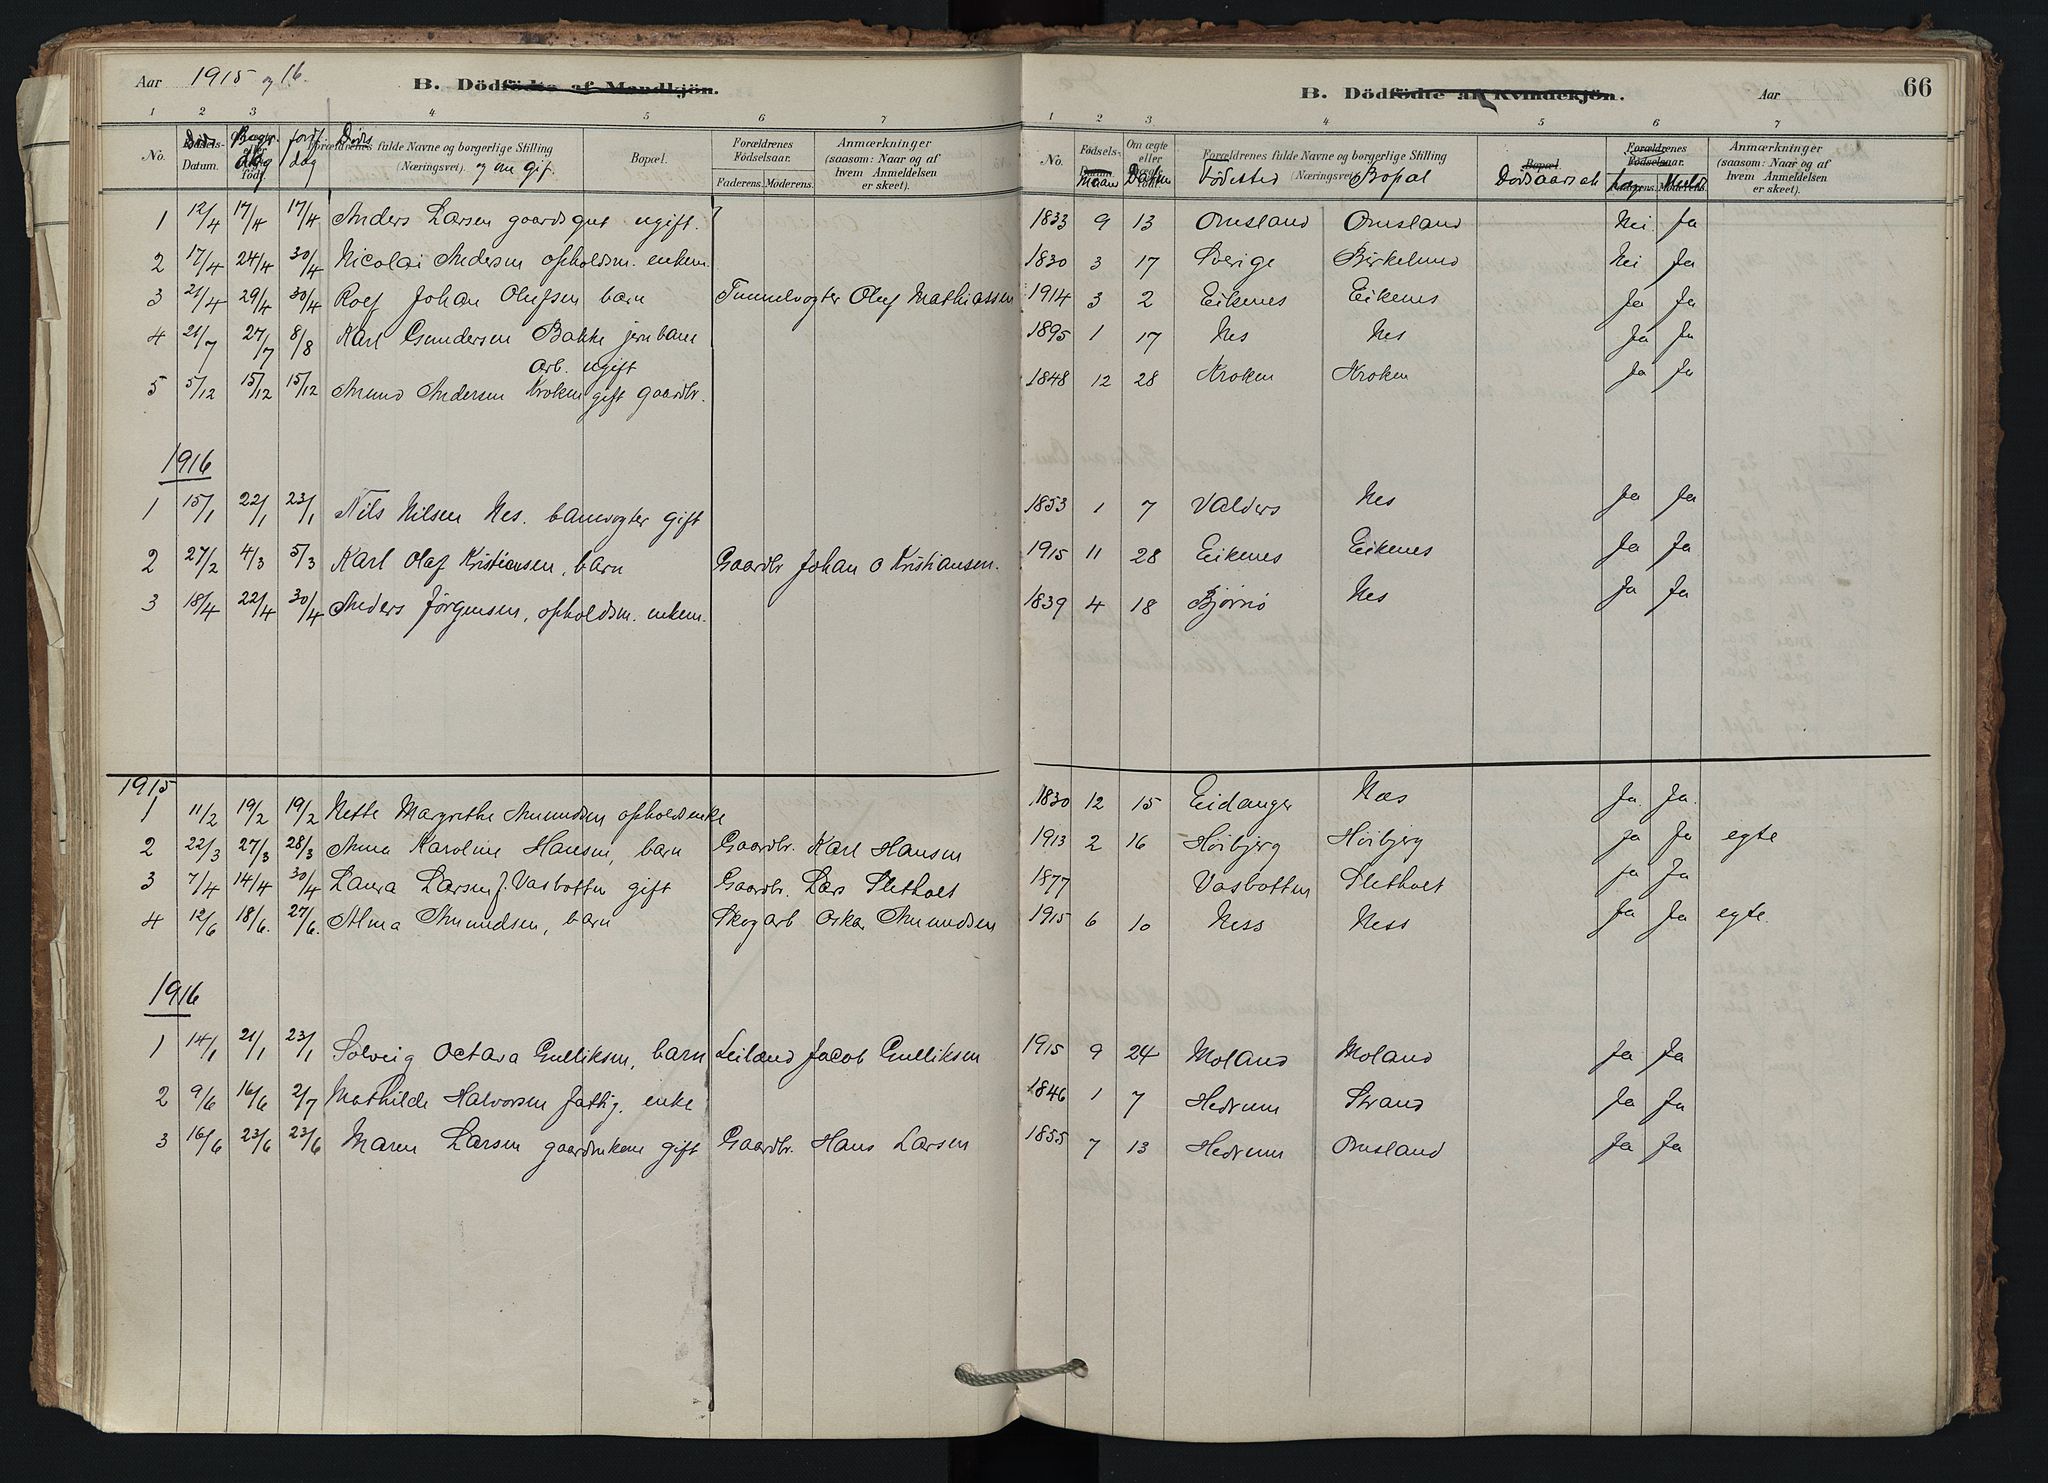 Aar 1915 og 16.
B. Dödfödte af Mandkjön.
B. Dödfödte af Kvindekjön.
Aar
66
1 2 3 4 5 6 7
1 2 3 4 5 6 7
No. Fødsels-Datum. dag dag Forældrenes fulde Navne og borgerlige Stilling (Næringsvei). og om gift Bopæl. Forældrenes Födselsaar. Faderens. Moderens. Anmærkninger (saasom: Naar og af hvem Anmeldelsen er skeet).
No. Födsels-Datum. Maan Om ægte eller Datum Forældrenes fulde Navne og borgerlige Stilling (Næringsvei) Födested Bopæl Bopæl Dödsaarsak Forældrenes Födselsaar. Faderens. Moderens. Anmærkninger (saasom: Naar og af hvem Anmeldelsen er skeet).
1 12/4 17/4 17/4 Anders Larsen gaardsgut ugift. 1833 9 13 Omsland Omsland Nei Ja
2 17/4 24/4 30/4 Nicolai Andersen opholdsm. enkem. 1830 3 17 Sverige Birkelund Nei Ja
3 21/4 29/4 30/4 Rolf Johan Olufsen barn Tunnelvogter Oluf Mathiassen 1914 3 2 Eikenes Eikenes Ja Ja
4 21/7 27/7 8/8 Karl Gundersen Bakke jernbane 1895 1 17 Nes Nes Ja Ja
arb. ugift
5 5/12 15/12 15/12 Amund Andersen Kroken gift gaardbr. 1848 12 28 Kroken Kroken Ja Ja
1916
1 15/1 22/1 23/1 Nils Nilsen Nes. banevogter gift 1853 1 7 Valders Nes Ja Ja
2 27/2 4/3 5/3 Karl Olaf Kristiansen, barn Gaardbr Johan O Kristiansen. 1915 11 28 Eikenes Eikenes Ja Ja
3 18/4 22/4 30/4 Anders Jörgensen, opholdsm. enkem. 1839 4 18 Bjørnø Nes Ja Ja
1915
1 11/2 19/2 19/2 Nette Margrethe Amundsen opholdsenke 1830 12 15 Eidanger Næs Ja. Ja.
2 22/3 27/3 28/3 Anna Karoline Hansen, barn Gaardbr. Karl Hansen 1913 2 16 Høibjerg Høibjerg Ja Ja egte
3 7/4 14/4 30/4 Laura Larsen f. Vasbotten gift Gaardbr. Lars Sletholt 1877 Vasbotten Sletholt Ja Ja
4 12/6 18/6. 27/6. Alma Amundsen, barn Skogarb Oskar Amundsen 1915 6 10 Ness Ness Ja Ja egte.
1916
1 14/1 21/1 23/1 Solveig Octava Gulliksen, barn Leilænd Jacob Gulliksen 1915 9 24 Moland Moland Ja Ja
2 9/6 16/6 2/7 Mathilde Halvorsen fattig. enke 1846 1 7 Hedrum Strand Ja Ja
3 16/6 23/6 23/6 Maren Larsen gaardmkone gift Gaardbr. Hans Larsen 1855 7 13 Hedrum Omsland Ja Ja